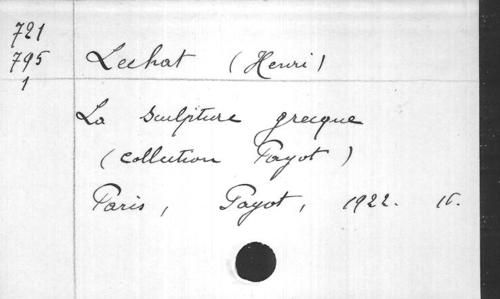 721
795
1
Lechat (Henri)
La sculpture grecque
(collection Payot)
Paris, Payot, 1922. 16.